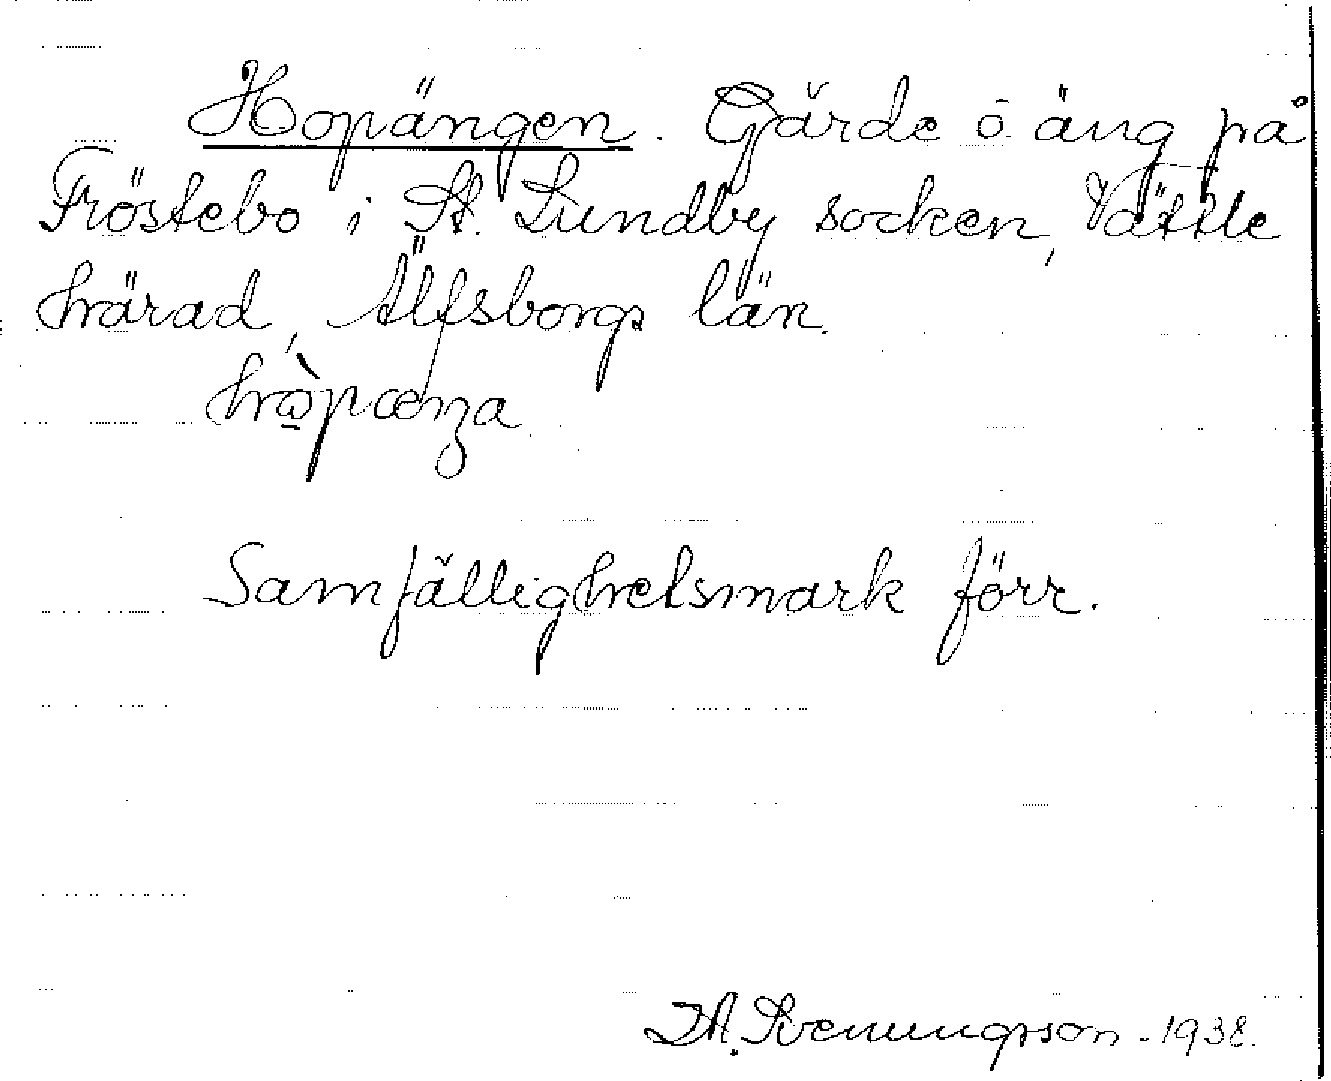 Hopängen. Gärde o äng på
Fröstebo i St. Lundby socken, Vättle
härad, Älfsborgs län.
Samfällighetsmark förr.
Svenungsson - 1938.